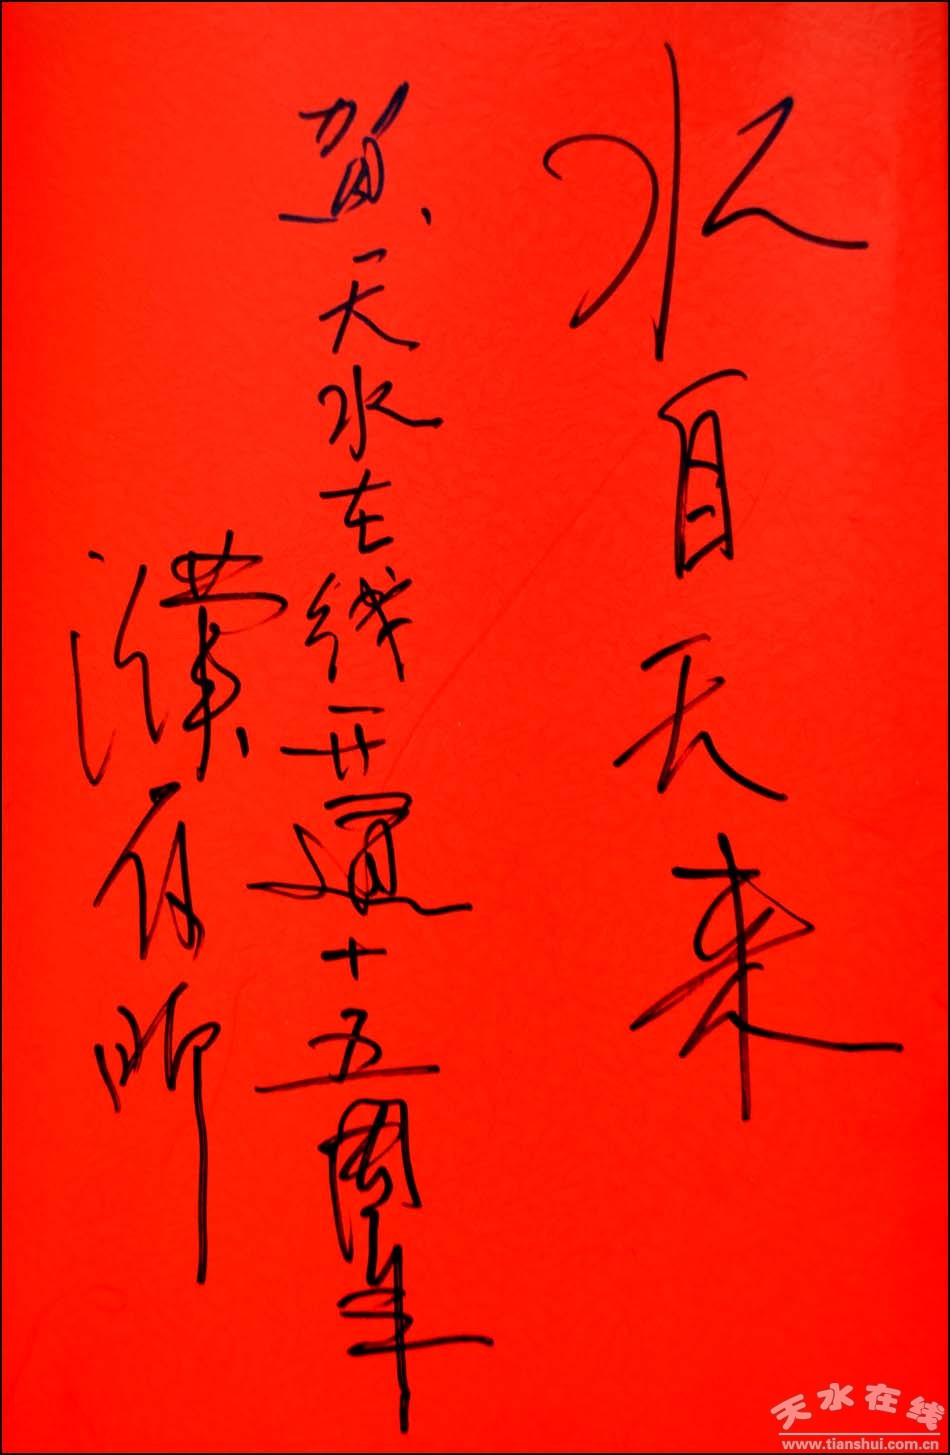 水自天来
贺天水在线开通十五周年
濮存昕
天水在线
www.tianshui.com.cn